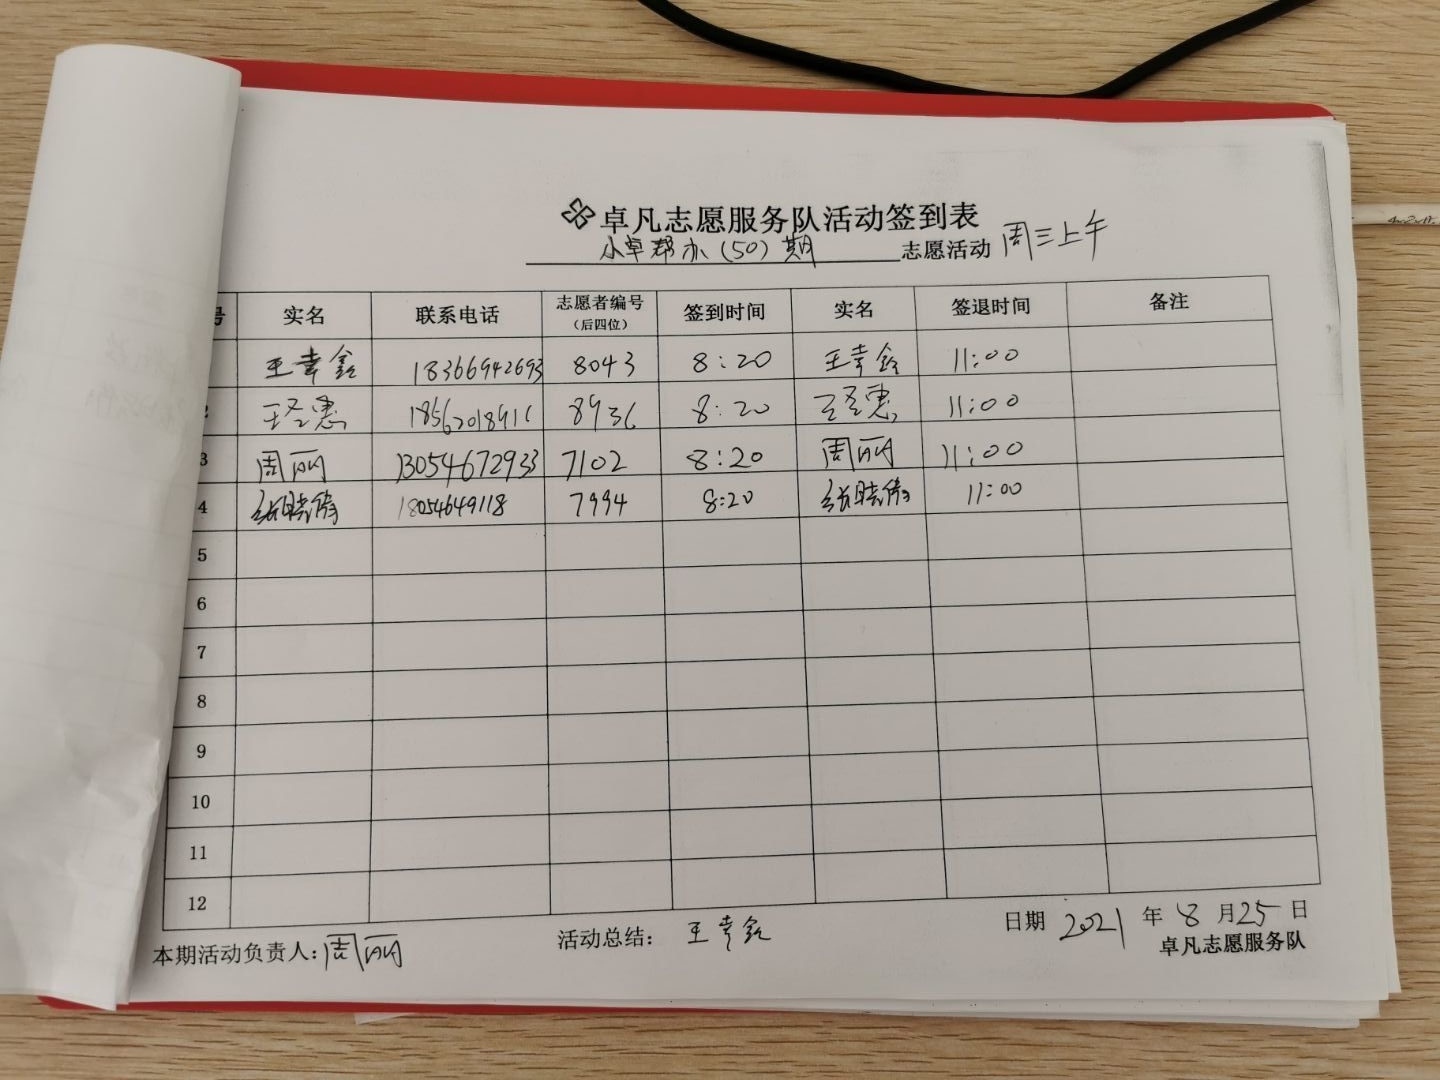 卓凡志愿服务队活动签到表
小卓帮办（50）期 志愿活动 周三上午
号 实名 联系电话 志愿者编号（后四位） 签到时间 实名 签退时间 备注
王幸鑫 18366942693 8043 8:20 王幸鑫 11:00
2 8936 8:20 11:00
3 周丽 13054672933 7102 8:20 周丽 11:00
4 18054649118 7994 8:20 11:00
5
6
7
8
9
10
11
12
本期活动负责人：周丽 活动总结： 王幸鑫 日期 2021 年 8 月 25 日
卓凡志愿服务队